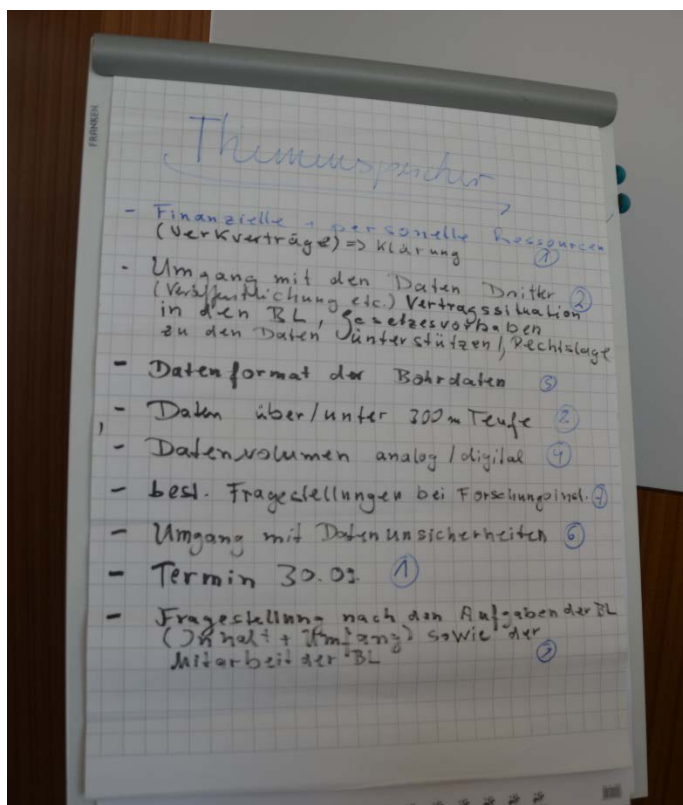 FRANKEN
Themenspeicher
- Finanzielle + personelle Ressourcen
(Werkverträge) => Klärung ①
- Umgang mit den Daten Dritter ②
(Veröffentlichung etc.) Vertragssituation
in den BL, Gesetzesvorhaben
zu den Daten unterstützen, Rechtslage
- Datenformat der Bohrdaten
- Daten über/unter 300m Teufe ②
- Datenvolumen analog/digital
- best. Fragestellungen bei Forschungsinst.
- Umgang mit Datenunsicherheiten ⑥
- Termin 30.09. ①
- Fragestellung nach den Aufgaben der BL
(Inhalt + Umfang) sowie der
Mitarbeit der BL